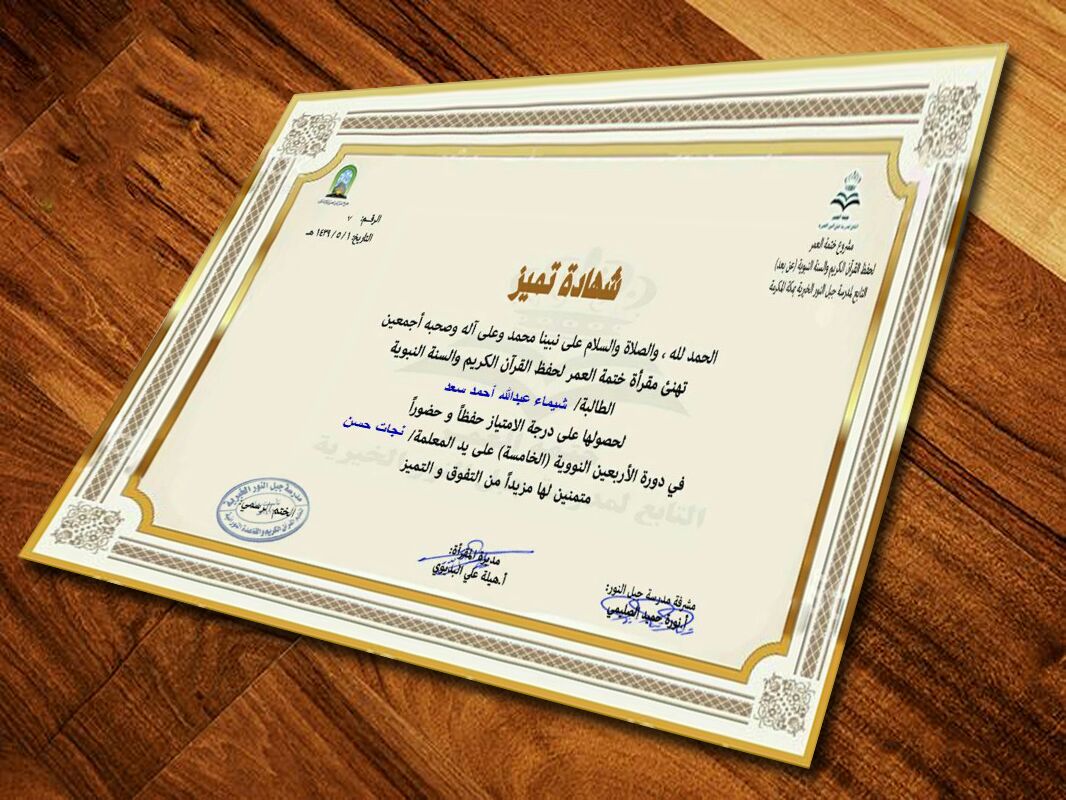 مشروع ختمة العمر
لحفظ القرآن الكريم والسنة النبوية (عن بعد)
التابع لمدرسة جبل النور الخيرية بمكة المكرمة
الرقم: ٧
التاريخ: ١ / ٥ / ١٤٣٩ هـ
شهادة تميز
الحمد لله ، والصلاة والسلام على نبينا محمد وعلى آله وصحبه أجمعين
تهنئ مقرأة ختمة العمر لحفظ القرآن الكريم والسنة النبوية
الطالبة/ شيماء عبدالله أحمد سعد
لحصولها على درجة الامتياز حفظاً و حضوراً
في دورة الأربعين النووية (الخامسة) على يد المعلمة/ نجات حسن
متمنين لها مزيداً من التفوق و التميز
مدرسة جبل النور الخيرية
الختم الرسمي:
مديرة المقرأة:
أ.هيلة علي البديوي
مشرفة مدرسة جبل النور:
أ.نورة حميد الصليمي